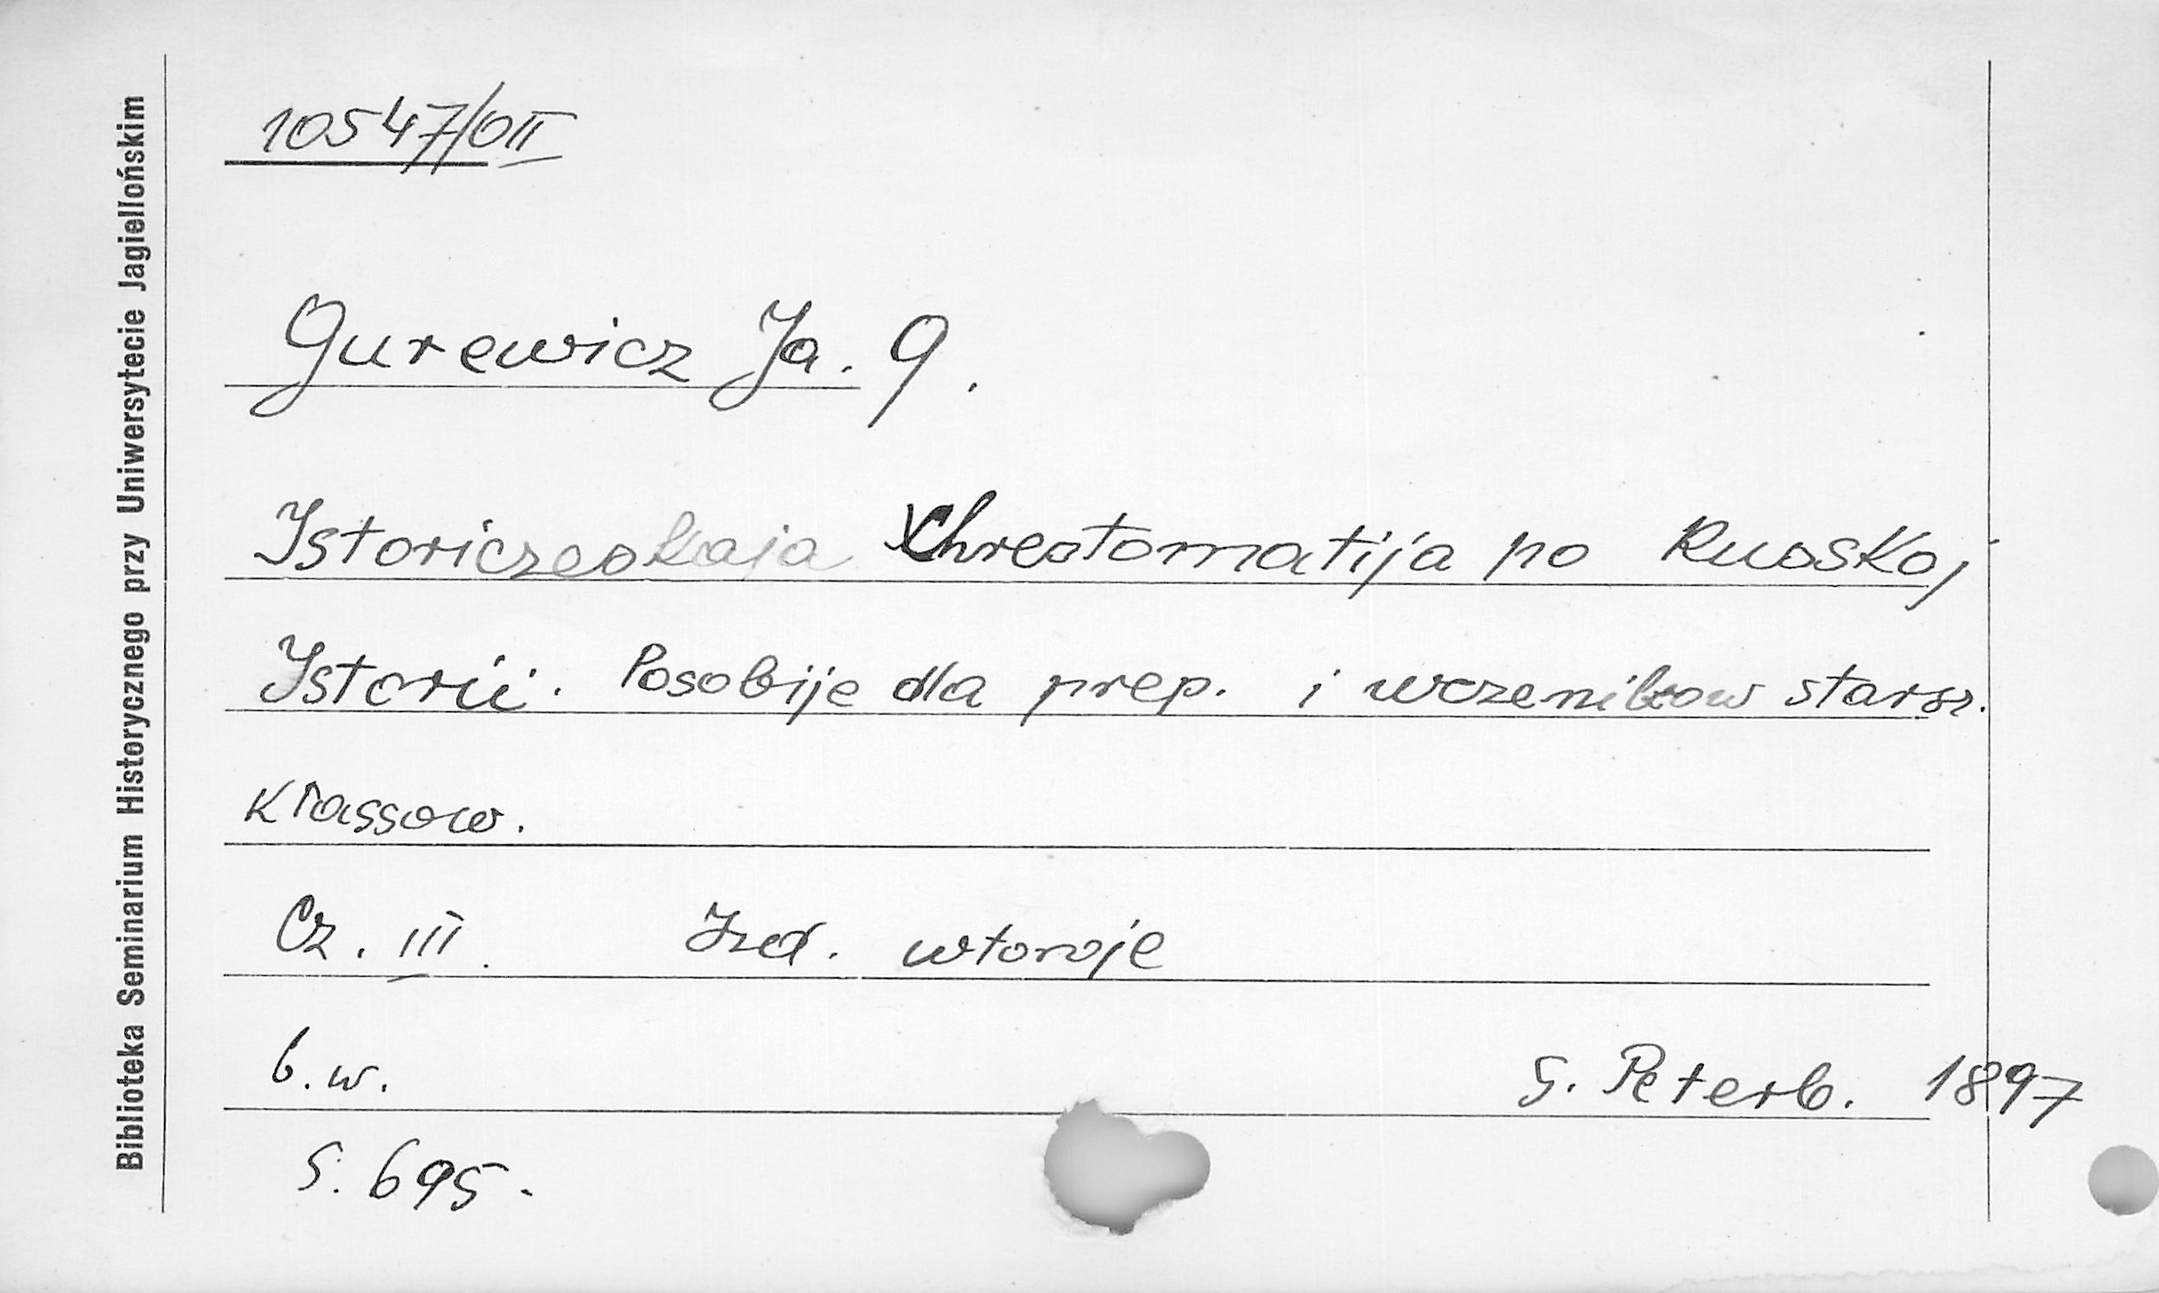 10547/OII
Gurewicz Ja. G.
Istoriczeskaja Chrestomatija po Russkoj
Istorii. Posobije dla prep. i uczenikow starsz.
klassow.
Cz. III. Izd. wtoroje
b.w. S. Peterb. 1897
S. 695.
Biblioteka Seminarium Historycznego przy Uniwersytecie Jagiellońskim